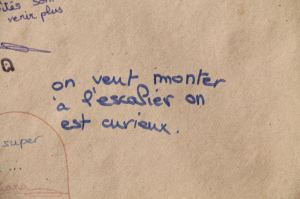 venir plus
on veut monter
à l'escalier on
est curieux.
super
...